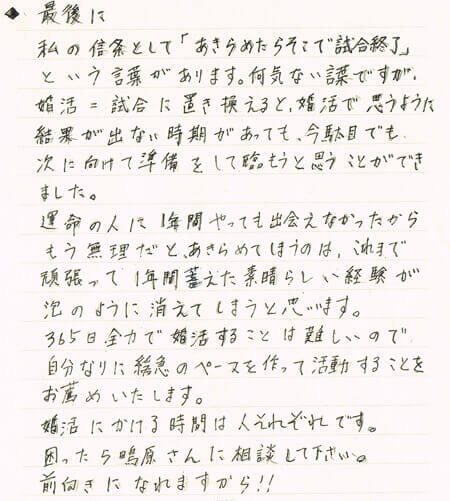 ◆ 最後に
私の信条として「あきらめたらそこで試合終了」
という言葉があります。何気ない言葉ですが、
婚活=試合に置き換えると、婚活で思うように
結果が出ない時期があっても、今駄目でも
次に向けて準備をして臨もうと思うことができ
ました。
運命の人に1年間やっても出会えなかったから
もう無理だと、あきらめてしまうのは、これまで
頑張って1年間蓄えた素晴らしい経験が
泡のように消えてしまうと思います。
365日全力で婚活することは難しいので
自分なりに緩急のペースを作って活動することを
お薦めいたします。
婚活にかける時間は人それぞれです。
困ったら鳴原さんに相談して下さい。
前向きになれますから!!